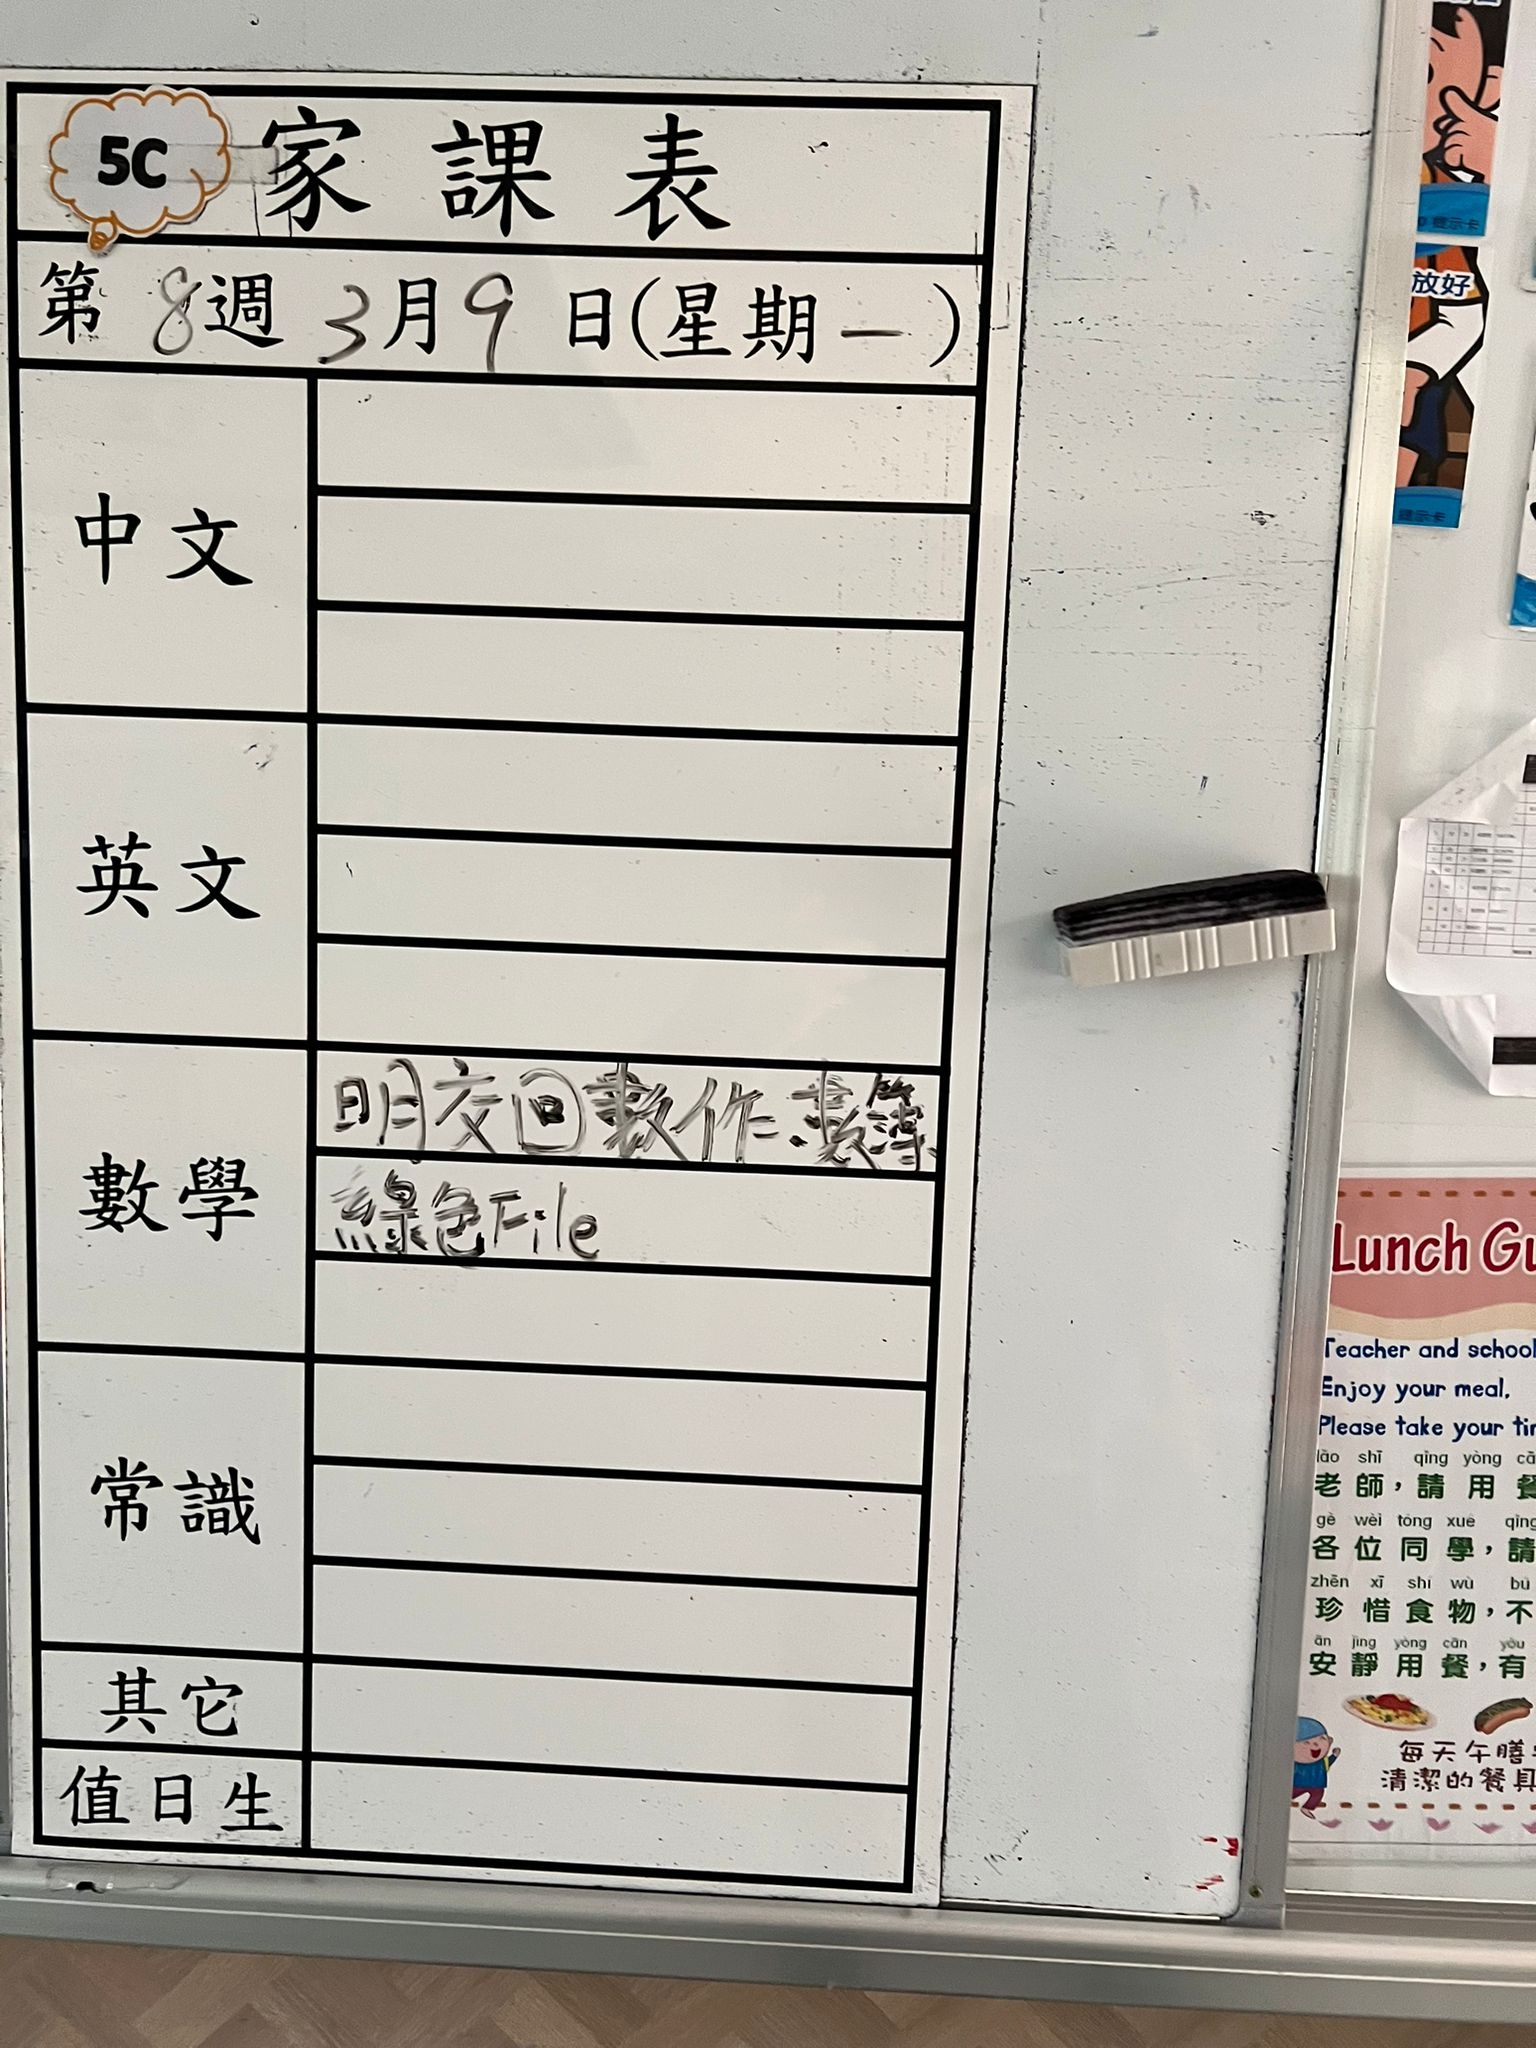 5C 家課表
第8週 3月9日(星期一)
中文
英文
數學
明交回數作.書簿
綠色File
常識
其它
值日生
放好
提示卡
提示卡
Lunch
Teacher and school
Enjoy your meal,
Please take your
lǎo shī qǐng yòng
老師，請用餐
gè wèi tóng xué qǐng
各位同學，請
zhēn xī shí wù bù
珍惜食物，不
ān jìng yòng cān yǒu
安靜用餐，有
每天午膳
清潔的餐具